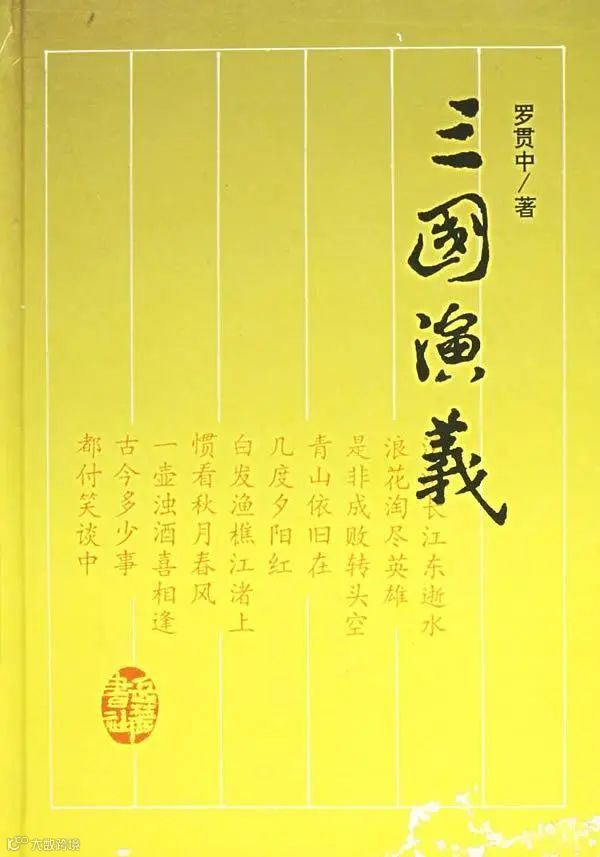 罗贯中/著
三國演義
长江东逝水
浪花淘尽英雄
是非成败转头空
青山依旧在
几度夕阳红
白发渔樵江渚上
惯看秋月春风
一壶浊酒喜相逢
古今多少事
都付笑谈中
岳麓
書社
大数跨境